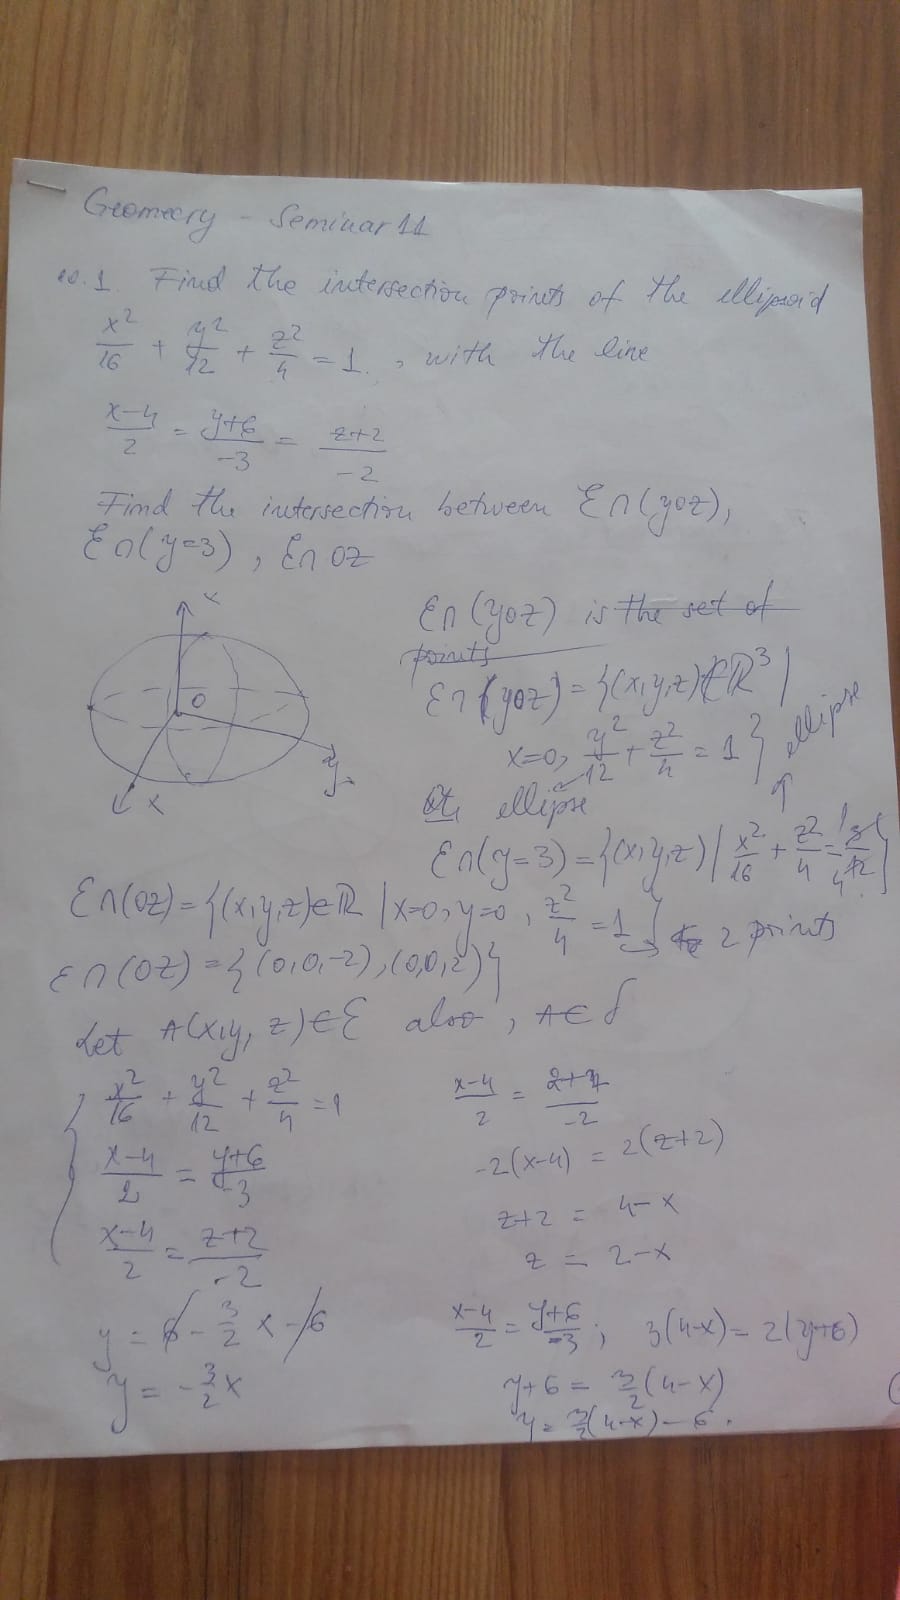 Geometry - Seminar 11
ex. 1. Find the intersection points of the ellipsoid
x²/16 + y²/12 + z²/4 = 1, with the line
x-4/2 = y+6/-3 = z+2/-2
Find the intersection between ℰ∩(yoz),
ℰ∩(y=3), ℰ∩OZ
x
O
y
x
ℰ∩(yoz) is the set of
points
ℰ∩(yoz) = {(x,y,z)∈ℝ³ |
x=0, y²/12 + z²/4 = 1} ellipse
ellipse
ℰ∩(y=3) = {(x,y,z) | x²/16 + z²/4 = 3/4}
ℰ∩(OZ) = {(x,y,z)∈ℝ | x=0, y=0, z²/4 = 1} 2 points
ℰ∩(OZ) = {(0,0,-2),(0,0,2)}
Let A(x,y,z)∈ℰ also, A∈δ
{ x²/16 + y²/12 + z²/4 = 1
x-4/2 = y+6/-3
x-4/2 = z+2/-2
y = 6 - 3/2 x - 6
y = -3/2 x
x-4/2 = z+2/-2
-2(x-4) = 2(z+2)
z+2 = 4-x
z = 2-x
x-4/2 = y+6/-3 ; 3(4-x) = 2(y+6)
y+6 = 3/2(4-x)
y = 3/2(4-x) - 6.